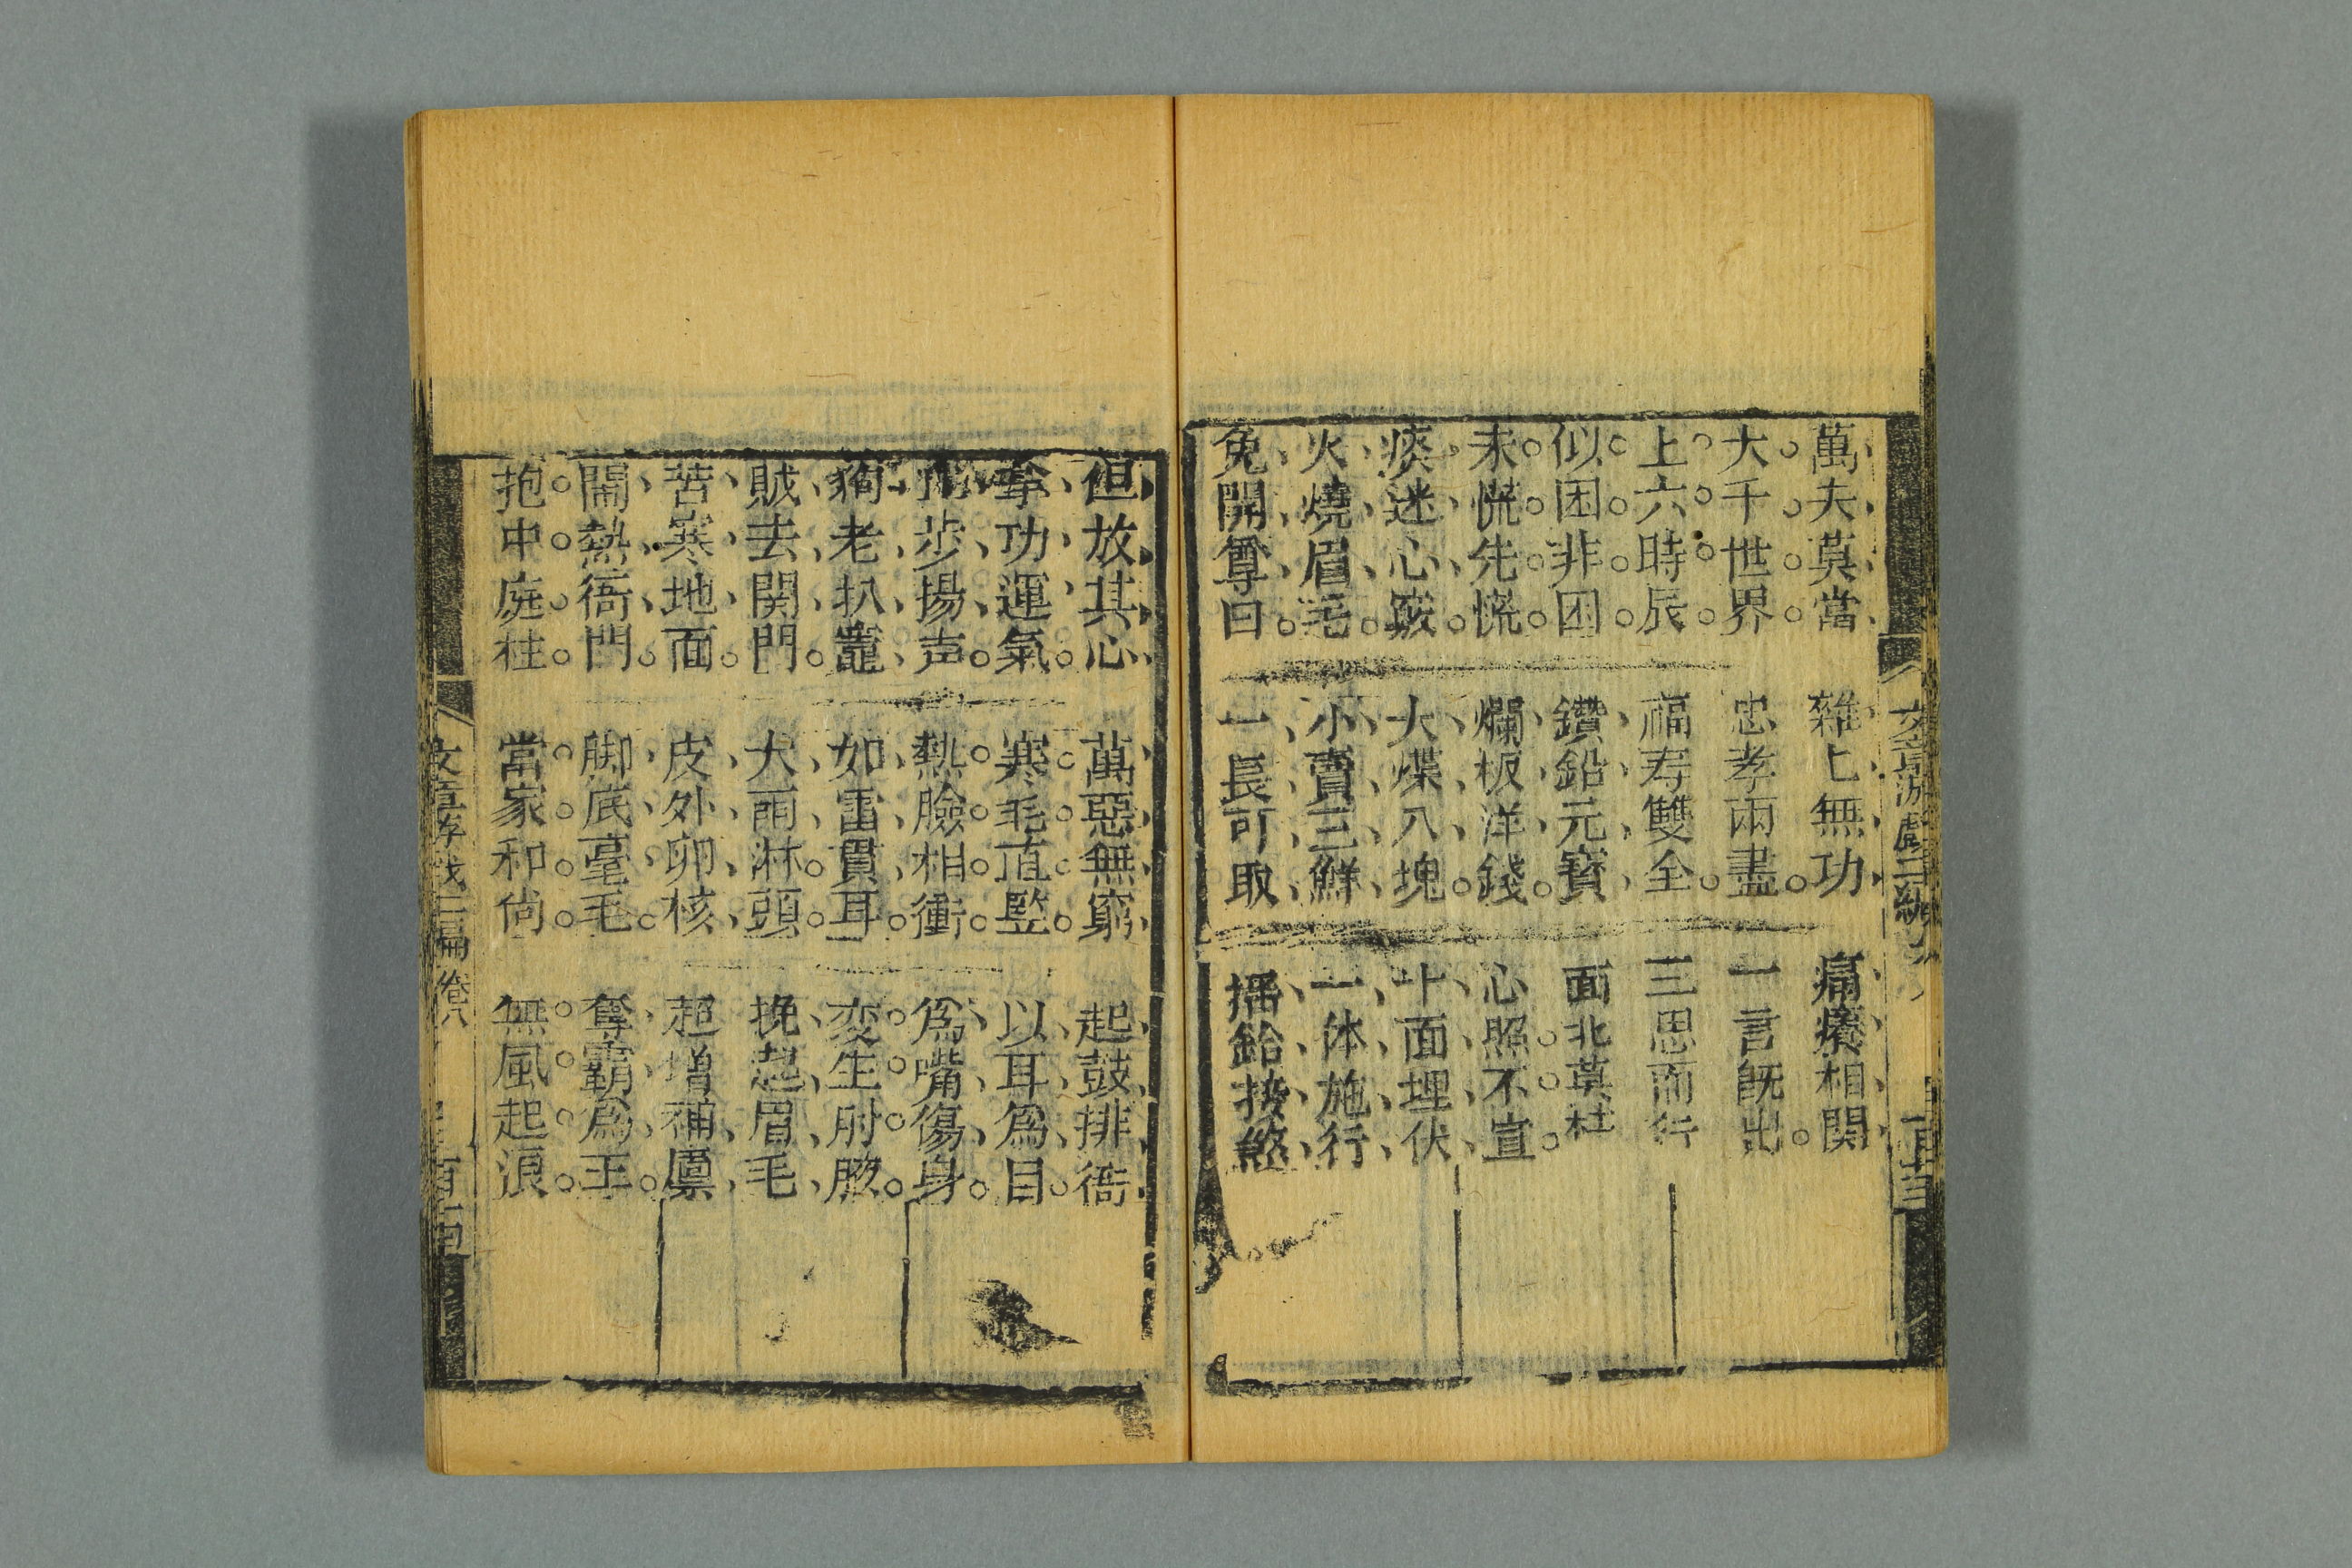 萬夫莫當 雜亾無功 痛癢相関
大千世界 忠孝兩盡 一言既出
上六時辰 福寿雙全 三思而行
似困非困 鑽鉛元寶 面北莫杜
未慌先慌 爛板洋錢 心照不宣
痰迷心竅 大煠八塊 十面埋伏
火燒眉毛 小賣三鮮 一体施行
免開尊口 一長可取 摇鈴接煞
文章游戲三編
但放其心 萬惡無窮 起鼓排衙
拿功運氣 寒毛直監 以耳為目
步揚声 熱臉相衝 為嘴傷身
狗老扒竈 如雷貫耳 变生肘腋
賊去関門 大雨淋頭 挽起眉毛
苦寒地面 皮外卵核 超増補廪
閙熱衙門 脚底毫毛 奪霸為王
抱中庭柱 當家和尚 無風起浪
文章游戲三編 卷八